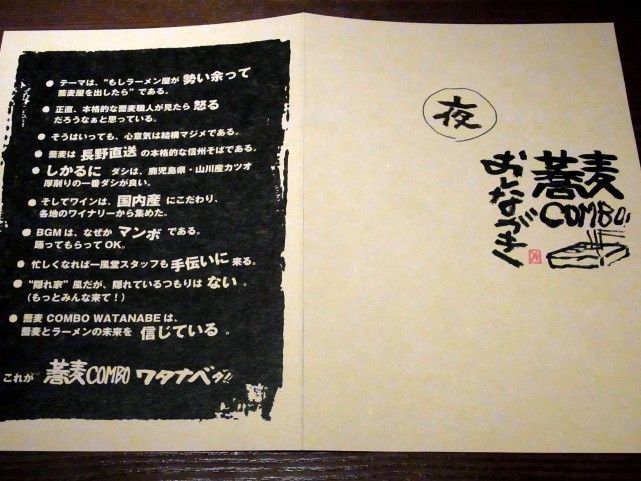 ● テーマは、“もしラーメン屋が 勢い余って
蕎麦屋を出したら”である。
● 正直、本格的な蕎麦職人が見たら 怒る
だろうなぁと思っている。
● そうはいっても、心意気は結構マジメである。
● 蕎麦は 長野直送 の本格的な信州そばである。
● しかるに ダシは、鹿児島県・山川産カツオ
厚削りの一番ダシが良い。
● そしてワインは、国内産 にこだわり、
各地のワイナリーから集めた。
● BGMは、なぜか マンボ である。
踊ってもらってOK。
● 忙しくなれば一風堂スタッフも 手伝いに 来る。
● “隠れ家”風だが、隠れているつもりは ない 。
(もっとみんな来て!)
● 蕎麦 COMBO WATANABE は、
蕎麦とラーメンの未来を 信じている 。
これが 蕎麦COMBO ワタナベだ!!
夜
蕎麦
COMBO
おしながき